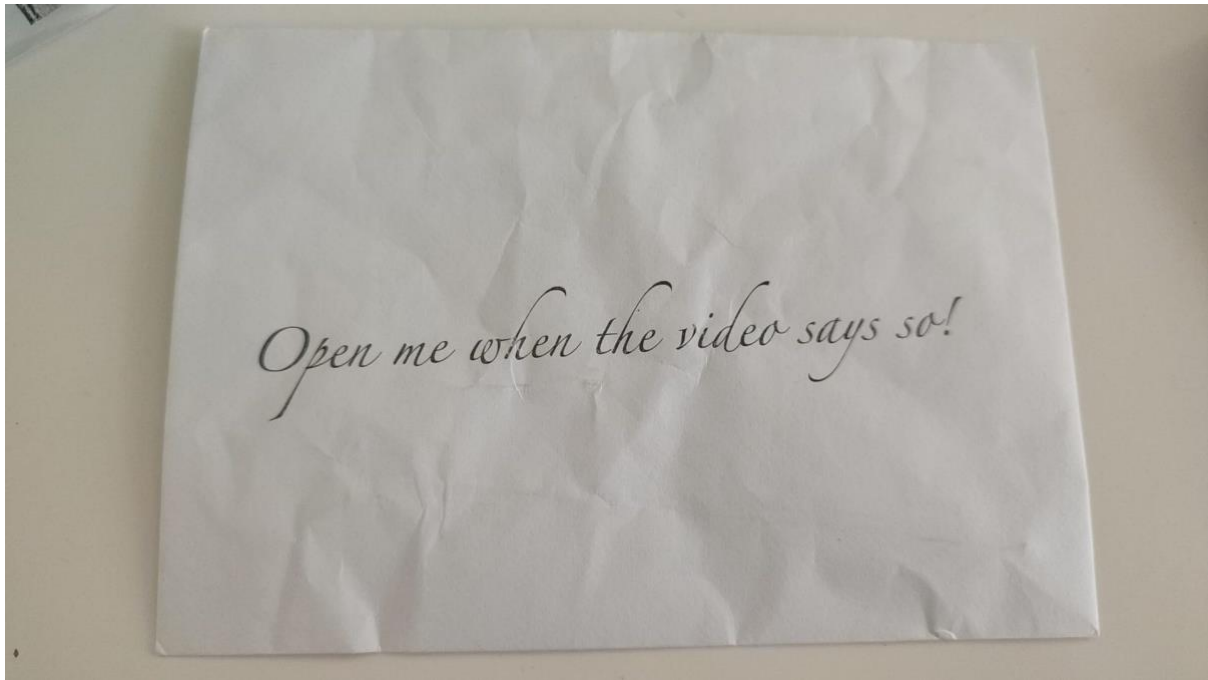 Open me when the video says so!